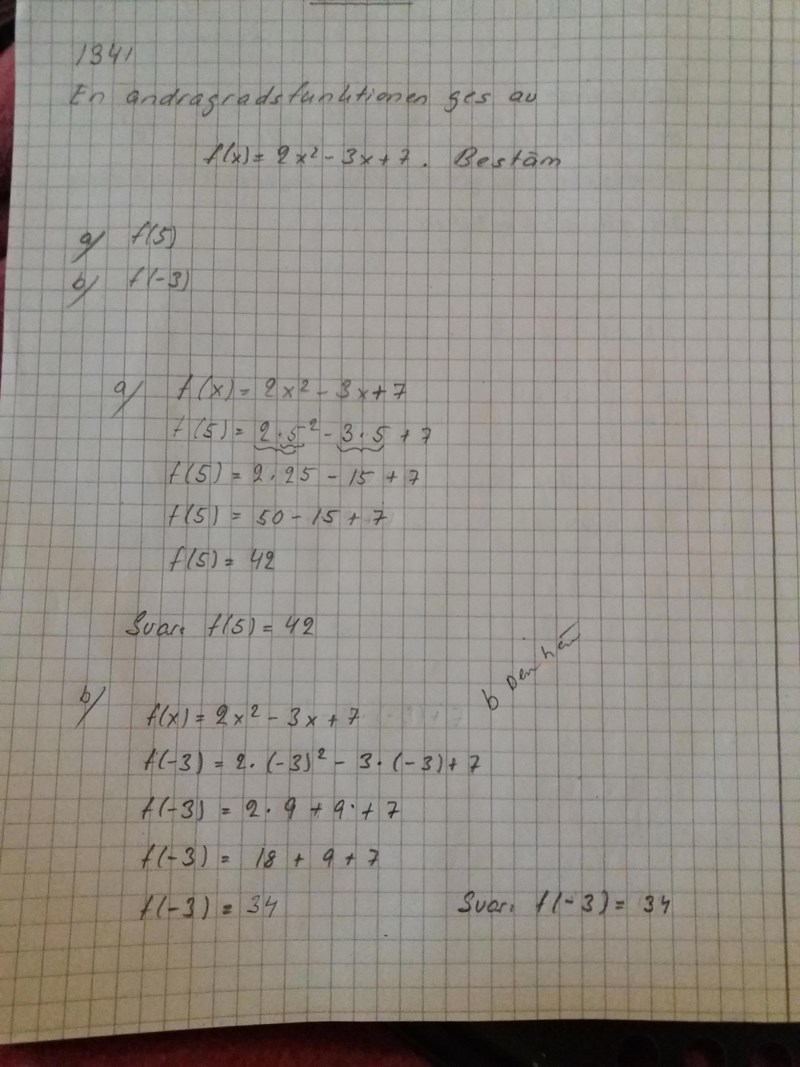 1341
En andragradsfunktionen ges av
f(x) = 2x² - 3x + 7. Bestäm
a/ f(5)
b/ f(-3)
a/ f(x) = 2x² - 3x + 7
f(5) = 2·5² - 3·5 + 7
f(5) = 2·25 - 15 + 7
f(5) = 50 - 15 + 7
f(5) = 42
Svar: f(5) = 42
b Den här
b/ f(x) = 2x² - 3x + 7
f(-3) = 2·(-3)² - 3·(-3) + 7
f(-3) = 2·9 + 9 + 7
f(-3) = 18 + 9 + 7
f(-3) = 34 Svar: f(-3) = 34